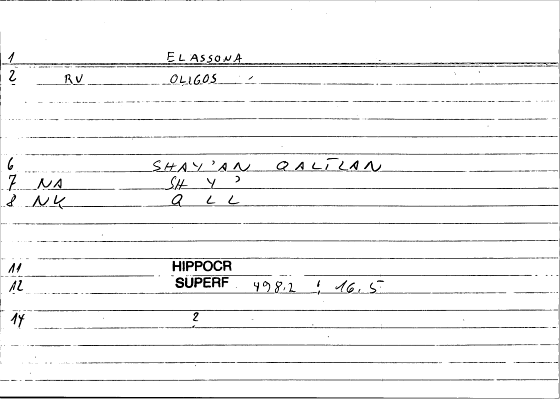 1 ELASSONA
2 RV OLIGOS
6 SHAY'AN QALĪLAN
7 NA SH Y '
8 NK Q L L
11 HIPPOCR
12 SUPERF 498.2 ; 16.5
14 2